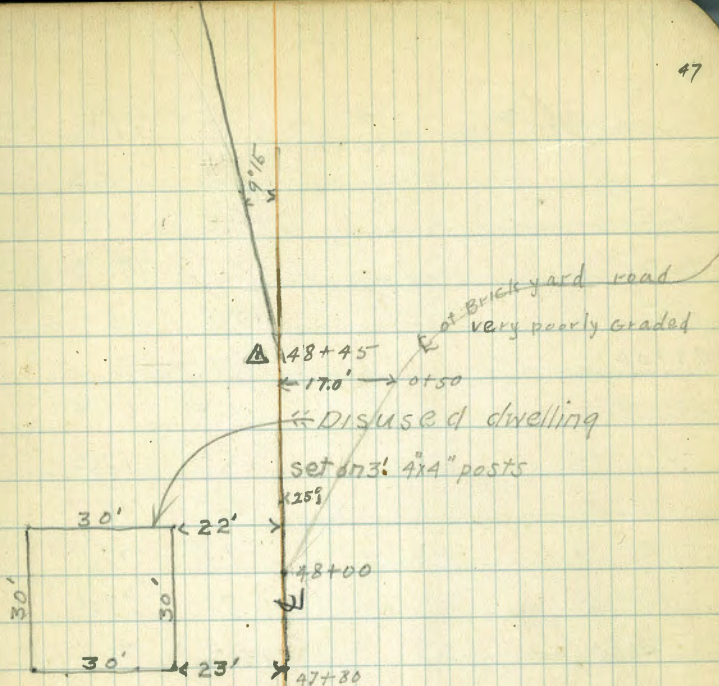 47
9°15'
℄ of Brickyard road
very poorly Graded
48+45
17.0' 0+50
Disused dwelling
set on 3' 4"x4" posts
25°
30' 22'
48+00
30' 30'
℄
30' 23'
47+80